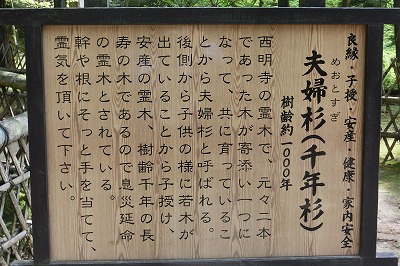 良縁・子授・安産・健康・家内安全
めおとすぎ
夫婦杉(千年杉)
樹齢約一〇〇〇年
西明寺の霊木で、元々二本
であった木が寄添い一つに
なって、共に育っているこ
とから夫婦杉と呼ばれる。
後側から子供の様に若木が
出ていることから子授け、
安産の霊木、樹齢千年の長
寿の木であるので息災延命
の霊木とされている。
幹や根にそっと手を当てて、
霊気を頂いて下さい。